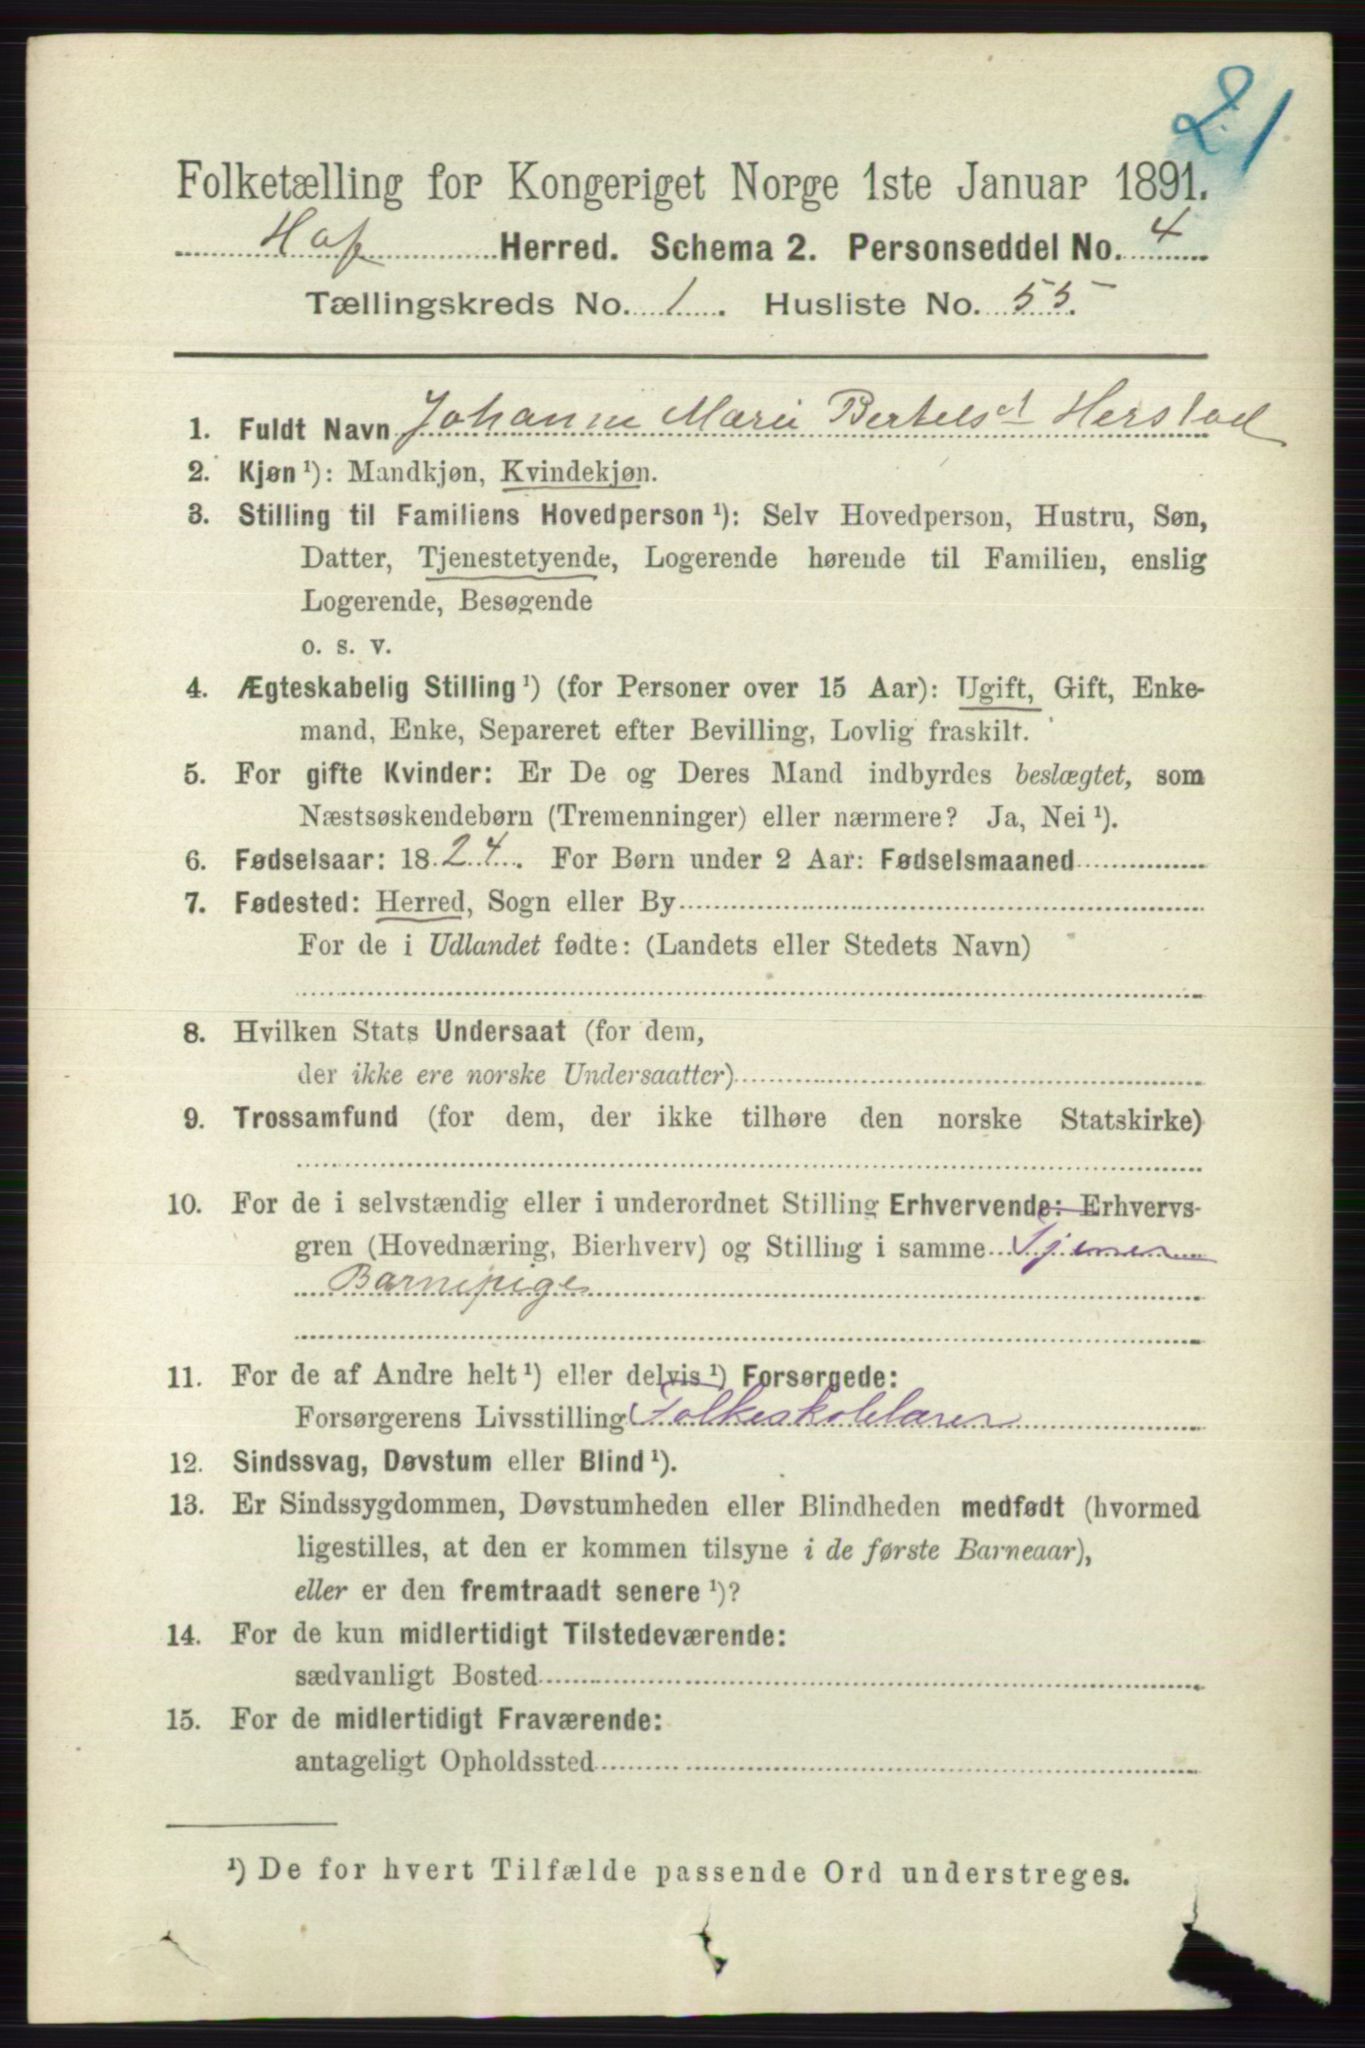 21
Folketælling for Kongeriget Norge 1ste Januar 1891.
Hof Herred. Schema 2. Personseddel No. 4
Tællingskreds No. 1. Husliste No. 55
1. Fuldt Navn Johanne Marie Bertelsdt Herstad
2. Kjøn ¹): Mandkjøn, Kvindekjøn.
3. Stilling til Familiens Hovedperson ¹): Selv Hovedperson, Hustru, Søn,
Datter, Tjenestetyende, Logerende hørende til Familien, enslig
Logerende, Besøgende
o. s. v.
4. Ægteskabelig Stilling ¹) (for Personer over 15 Aar): Ugift, Gift, Enke-
mand, Enke, Separeret efter Bevilling, Lovlig fraskilt.
5. For gifte Kvinder: Er De og Deres Mand indbyrdes beslægtet, som
Næstsøskendebørn (Tremenninger) eller nærmere? Ja, Nei ¹).
6. Fødselsaar: 1824. For Børn under 2 Aar: Fødselsmaaned
7. Fødested: Herred, Sogn eller By
For de i Udlandet fødte: (Landets eller Stedets Navn)
8. Hvilken Stats Undersaat (for dem,
der ikke ere norske Undersaatter)
9. Trossamfund (for dem, der ikke tilhøre den norske Statskirke)
10. For de i selvstændig eller i underordnet Stilling Erhvervende: Erhvervs-
gren (Hovednæring, Bierhverv) og Stilling i samme Tjener
Barnepige
11. For de af Andre helt ¹) eller delvis ¹) Forsørgede:
Forsørgerens Livsstilling Folkeskolelærer
12. Sindssvag, Døvstum eller Blind ¹).
13. Er Sindssygdommen, Døvstumheden eller Blindheden medfødt (hvormed
ligestilles, at den er kommen tilsyne i de første Barneaar),
eller er den fremtraadt senere ¹)?
14. For de kun midlertidigt Tilstedeværende:
sædvanligt Bosted
15. For de midlertidigt Fraværende:
antageligt Opholdssted
¹) De for hvert Tilfælde passende Ord understreges.